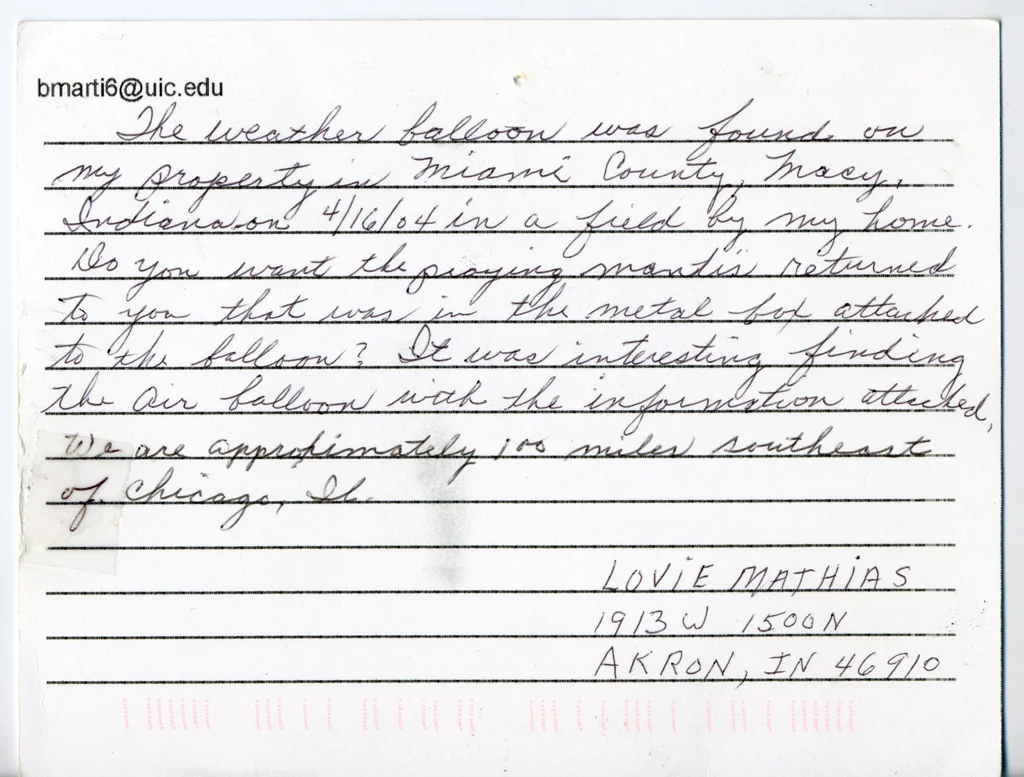 bmarti6@uic.edu
The weather balloon was found on
my property in Miami County, Macy,
Indiana on 4/16/04 in a field by my home.
Do you want the praying mantis returned
to you that was in the metal box attached
to the balloon? It was interesting finding
the air balloon with the information attached.
We are approximately 100 miles southeast
of Chicago, Il.
LOVIE MATHIAS
1913 W 1500N
AKRON, IN 46910